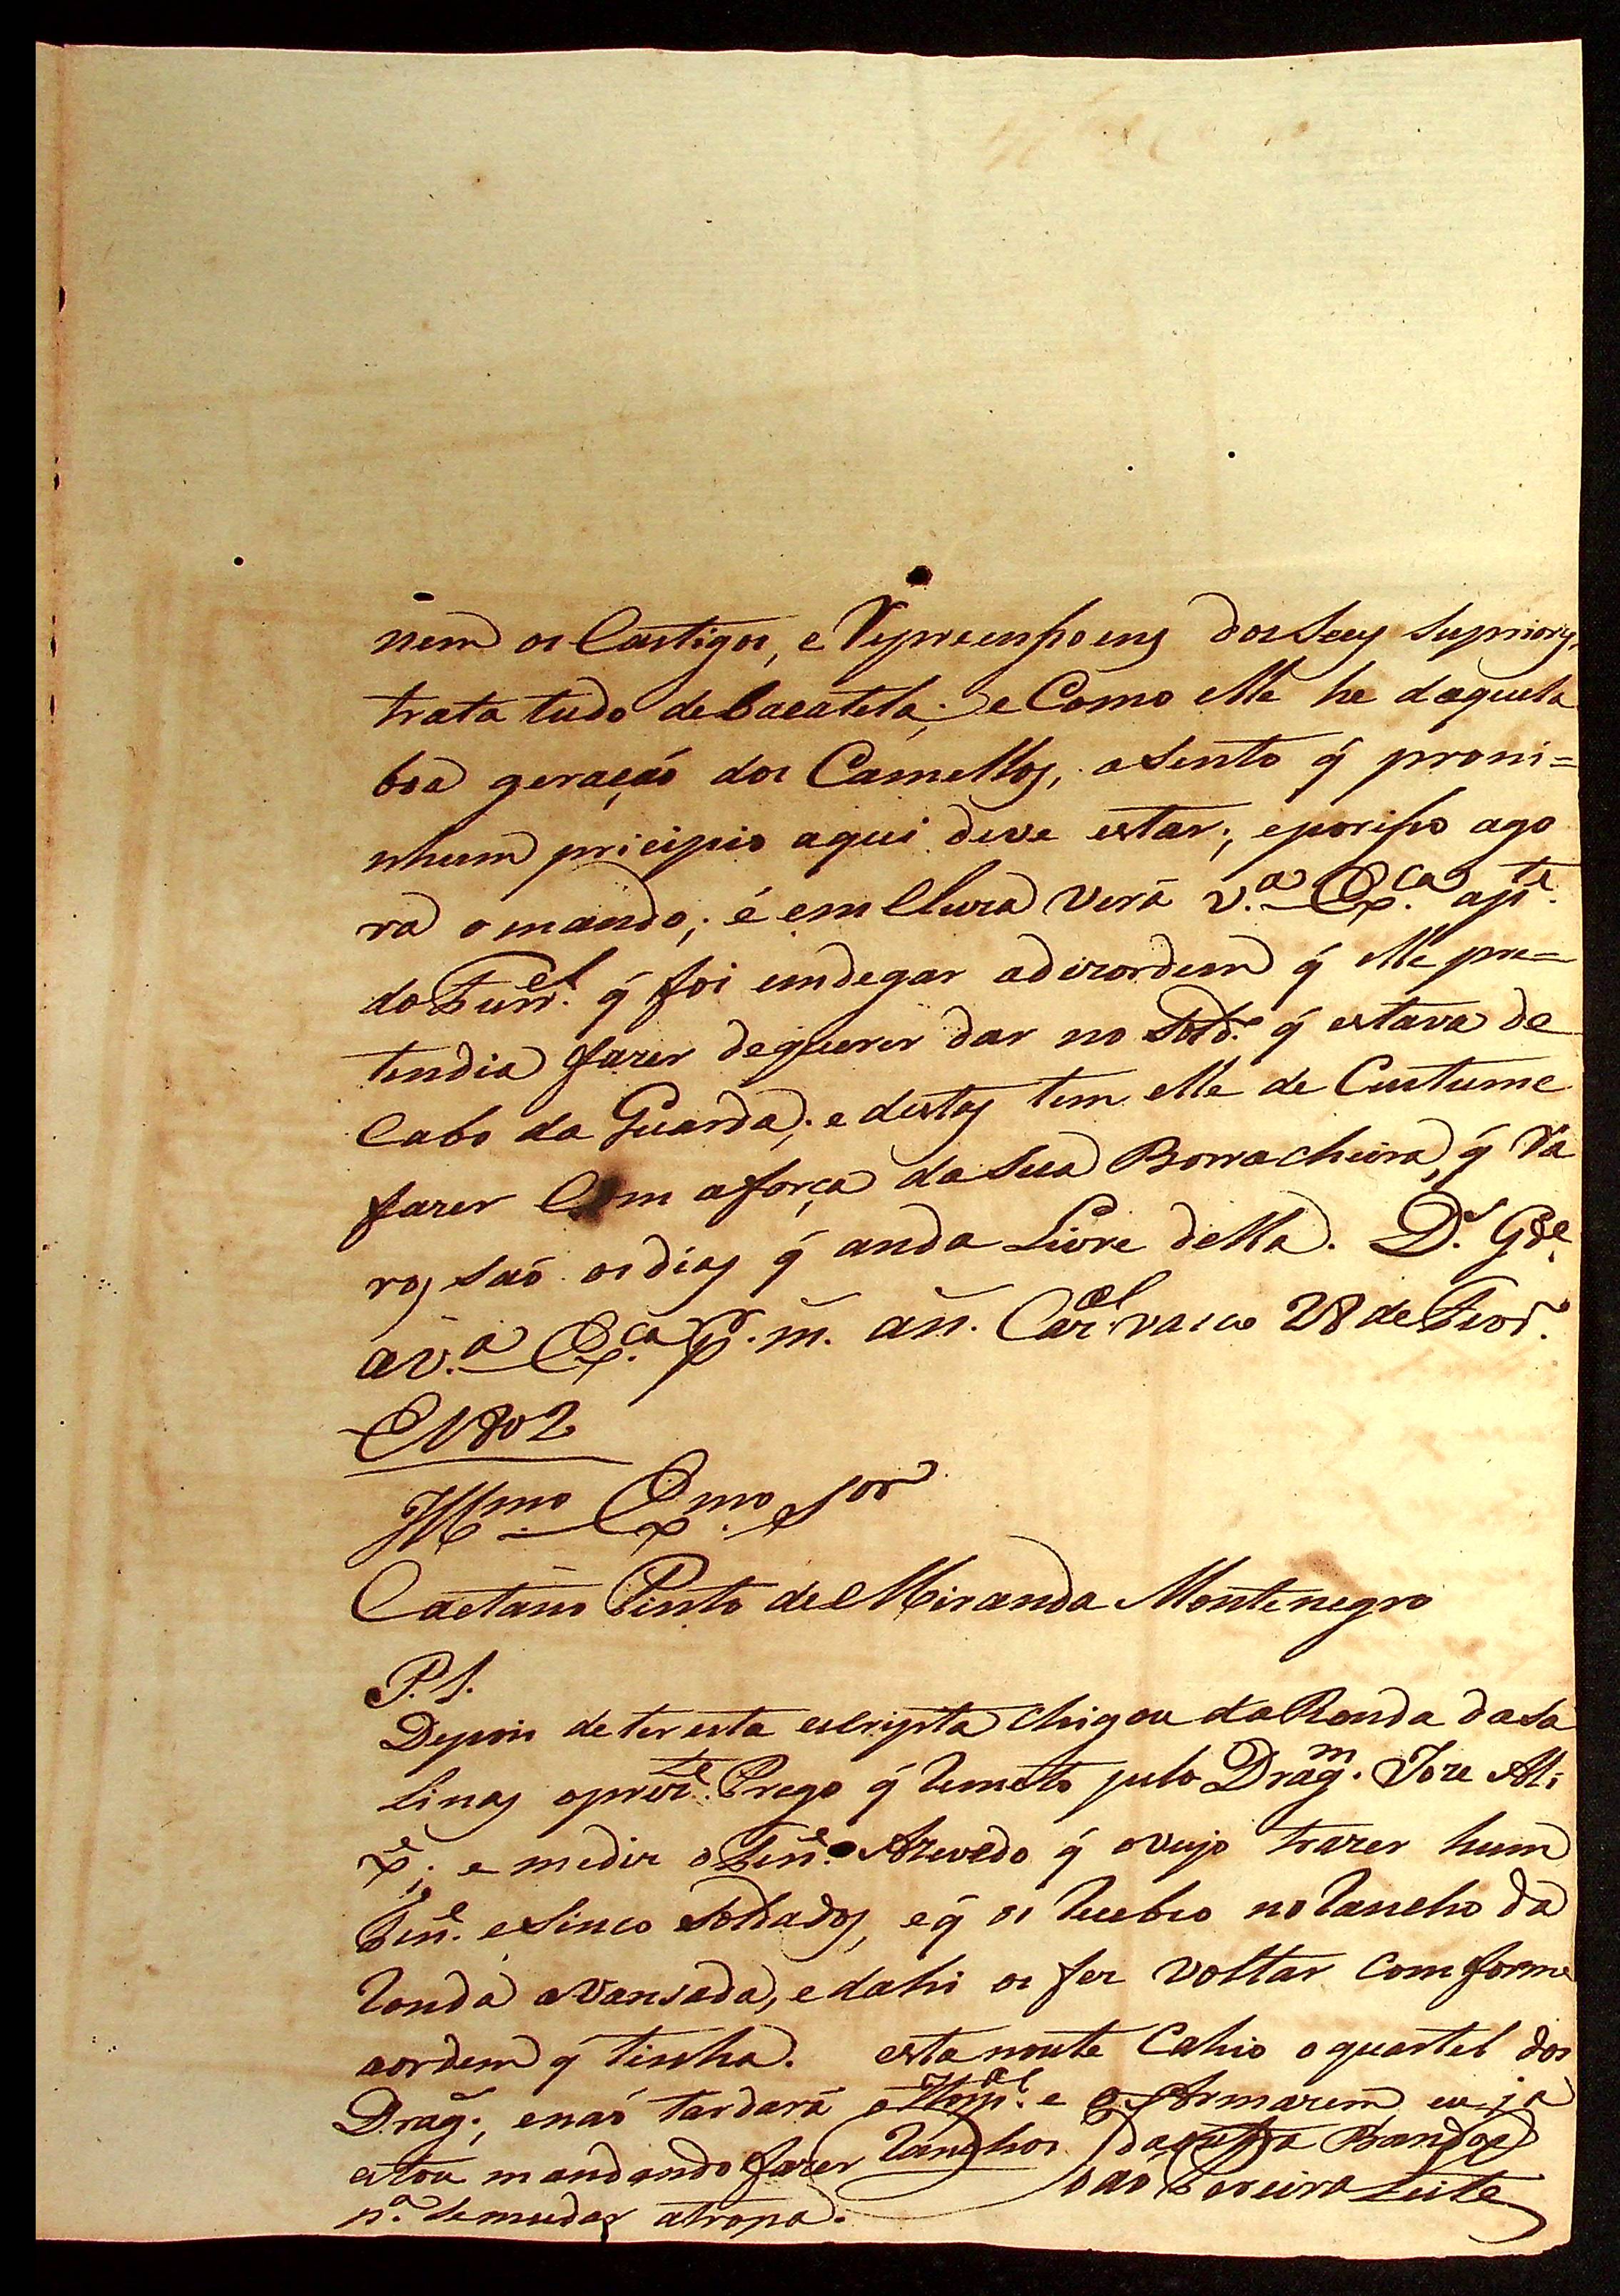 nem os Castigos, e Repreenshoens dos Seus Supriores,
trata tudo de bacatela; e Como elle he daquela
boa geração dos Camellos, asento q̃ proni=
nhum pricipio aqui deve estar; eporisso ago
ra omando; é em Clura Verá V.ª Ex.ca apte.
do Furr.el q̃ foi emdegar adizordem q̃ elle pre=
tendia fazer dequerer dar no Sold.º q̃ estava de
Cabo da Guarda; e destas tem elle de Custume
fazer Com aforça da Sua Borracheira, q̃ Ra
ros são os dias q̃ anda Livre della. D.s G.de
aV.ª Ex.ca P.r m. an. Car.el vasco 28 de Fevr.º
E 1802
Illmo Exmo Sor
Caetano Pinto de Miranda Montenegro
P.S.
Depois de ter esta escripta Chigou da Ronda da Sa
Linas oprez.te Prego q̃ Remeto pelo Drag.m Joze Ali
x.e; e mediz oTen.e Azevedo q̃ ovejo trazer hum
Ten.e eSinco Soldados, eq̃ os Recebeo no Rancho da
Ronda aVansada, edahi os fez Voltar Comforme
aordem q̃ tinha. esta noute Cahio oquartel dos
Drag.; enaõ tardará o Hosp.al e o Armazem, eu ja
estou mandando fazer Ranchos da outra Banda
p.ª Semudar atropa.
João Pereira Leite